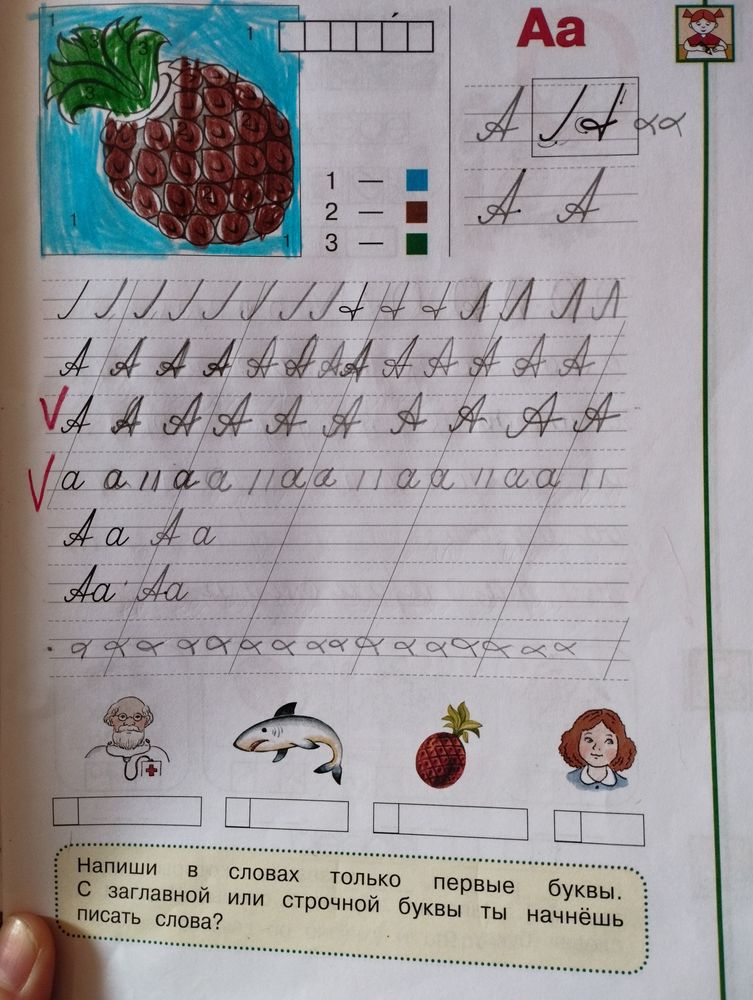 Аа
1
3
3
1
3
2
2
2
1
1
1 —
2 —
3 —
А А
А А
А А А А А А А А А А А А А
А А А А А А А А А А А
а а а а а а а а а а
А а А а
Аа Аа
Напиши в словах только первые буквы.
С заглавной или строчной буквы ты начнёшь
писать слова?